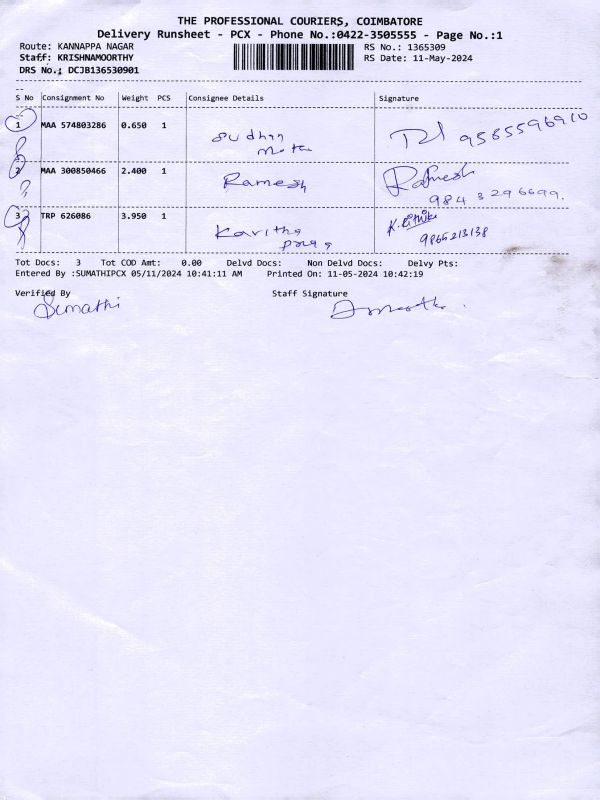 THE PROFESSIONAL COURIERS, COIMBATORE
Delivery Runsheet - PCX - Phone No.:0422-3505555 - Page No.:1
Route: KANNAPPA NAGAR
RS No.: 1365309
Staff: KRISHNAMOORTHY
RS Date: 11-May-2024
DRS No.: DCJB136530901
S No Consignment No Weight PCS Consignee Details Signature
1 MAA 574803286 0.650 1 Sudhan
9585596910
2 MAA 300850466 2.400 1 Ramesh Ramesh
984 3296699.
3 TRP 626086 3.950 1 Kavitha
9865213138
Tot Docs: 3 Tot COD Amt: 0.00 Delvd Docs: Non Delvd Docs: Delvy Pts:
Entered By :SUMATHIPCX 05/11/2024 10:41:11 AM Printed On: 11-05-2024 10:42:19
Verified By Staff Signature
Sumathi